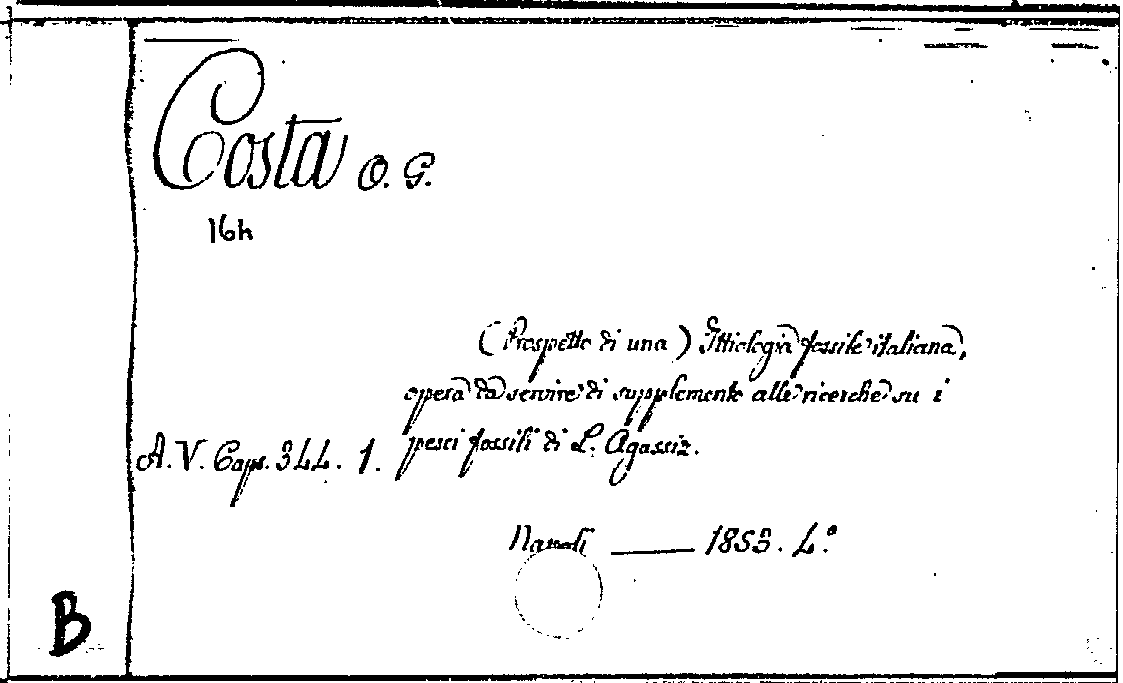 Costa O. G.
16h
(Prospetto di una) Ittiologia fossile italiana,
opera da servire di supplemento alle ricerche su i
A. V. Caps. 344. 1. pesci fossili di L. Agassiz.
Napoli — 1853. 4.º
B